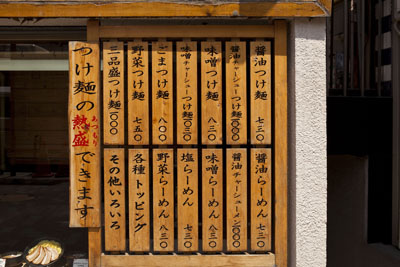 醤油つけ麺 七三〇
醤油チャーシューつけ麺 一〇〇〇
味噌つけ麺 八三〇
味噌チャーシューつけ麺 一一〇〇
ごまつけ麺 八〇〇
野菜つけ麺
三品盛つけ麺 一〇〇〇
醤油らーめん 七三〇
醤油チャーシューメン 一〇〇〇
味噌らーめん 八三〇
塩らーめん 七三〇
野菜らーめん 八三〇
各種トッピング
その他いろいろ
つけ麺の熱盛できます
あつもり